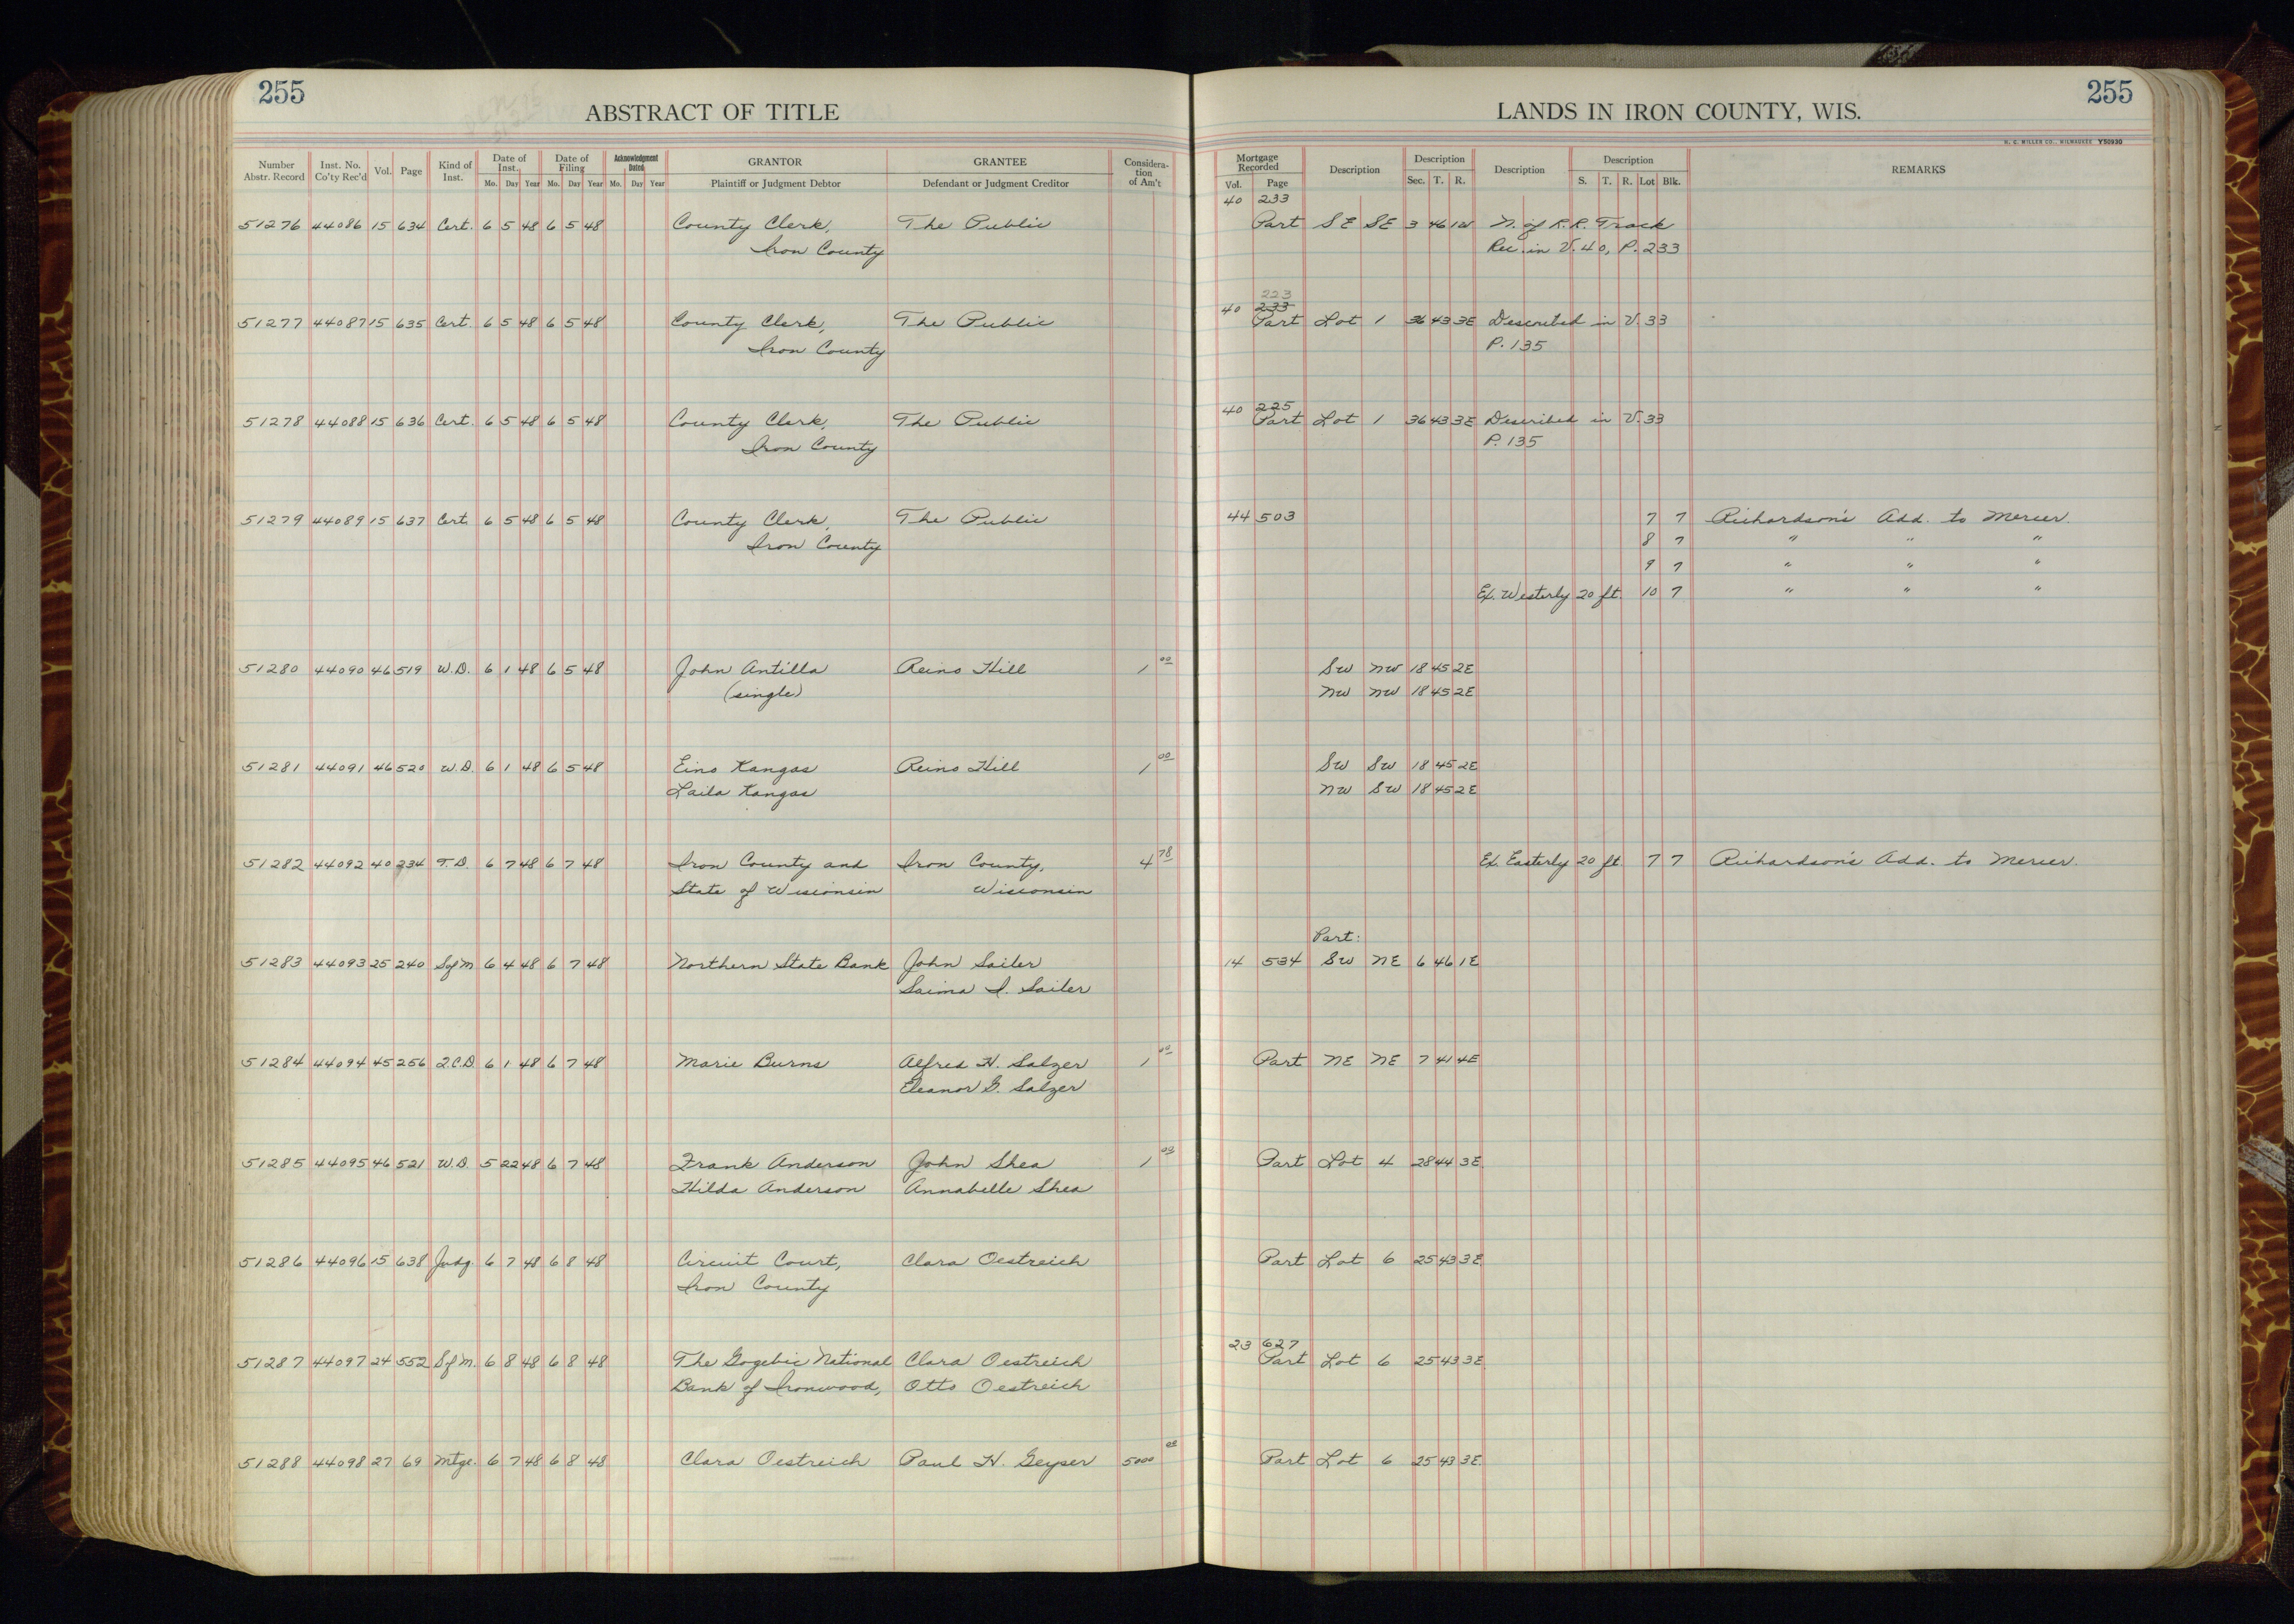 255
ABSTRACT OF TITLE
Number Abstr. Record
Inst. No. Co'ty Rec'd
Vol.
Page
Kind of Inst.
Date of Inst.
Mo. Day Year
Date of Filing
Mo. Day Year
Acknowledgment Dated
Mo. Day Year
GRANTOR
Plaintiff or Judgment Debtor
GRANTEE
Defendant or Judgment Creditor
Considera-tion of Am't
51276 44086 15 634 Cert. 6 5 48 6 5 48 County Clerk, The Public
Iron County
51277 44087 15 635 Cert. 6 5 48 6 5 48 County Clerk, The Public
Iron County
51278 44088 15 636 Cert. 6 5 48 6 5 48 County Clerk, The Public
Iron County
51279 44089 15 637 Cert. 6 5 48 6 5 48 County Clerk, The Public
Iron County
51280 44090 46 519 W.D. 6 1 48 6 5 48 John Antilla Reino Hill 1 00
(single)
51281 44091 46 520 W.D. 6 1 48 6 5 48 Eino Kangas Reino Hill 1 00
Laila Kangas
51282 44092 40 234 T.D. 6 7 48 6 7 48 Iron County and Iron County, 4 78
State of Wisconsin Wisconsin
51283 44093 25 240 Sofm 6 4 48 6 7 48 Northern State Bank John Sailer
Saima I. Sailer
51284 44094 45 256 Q.C.D. 6 1 48 6 7 48 Marie Burns Alfred H. Salzer 1 00
Eleanor G. Salzer
51285 44095 46 521 W.D. 5 22 48 6 7 48 Frank Anderson John Shea 1 00
Hilda Anderson Annabelle Shea
51286 44096 15 638 Judg. 6 7 48 6 8 48 Circuit Court, Clara Oestreich
Iron County
51287 44097 24 552 Sofm. 6 8 48 6 8 48 The Gogebic National Clara Oestreich
Bank of Ironwood, Otto Oestreich
51288 44098 27 69 Mtge. 6 7 48 6 8 48 Clara Oestreich Paul H. Geyser 5000 00
LANDS IN IRON COUNTY, WIS.
255
H. C. MILLER CO., MILWAUKEE Y50930
Mortgage Recorded
Vol. Page
Description
Description
Sec. T. R.
Description
Description
S. T. R. Lot Blk.
REMARKS
40 233
Part SE SE 3 46 1W N. of R.R. Track
Rec. in V. 40, P. 233
223
40 233
Part Lot 1 36 43 3E Described in V. 33
P. 135
40 225
Part Lot 1 36 43 3E Described in V. 33
P. 135
44 503 7 7 Richardson's Add. to Mercer.
8 7 " " "
9 7 " " "
Ex. Westerly 20 ft. 10 7 " " "
SW NW 18 45 2E
NW NW 18 45 2E
SW SW 18 45 2E
NW SW 18 45 2E
Ex. Easterly 20 ft. 7 7 Richardson's Add. to Mercer.
Part:
14 534 SW NE 6 46 1E
Part NE NE 7 41 4E
Part Lot 4 28 44 3E
Part Lot 6 25 43 3E
23 627
Part Lot 6 25 43 3E
Part Lot 6 25 43 3E